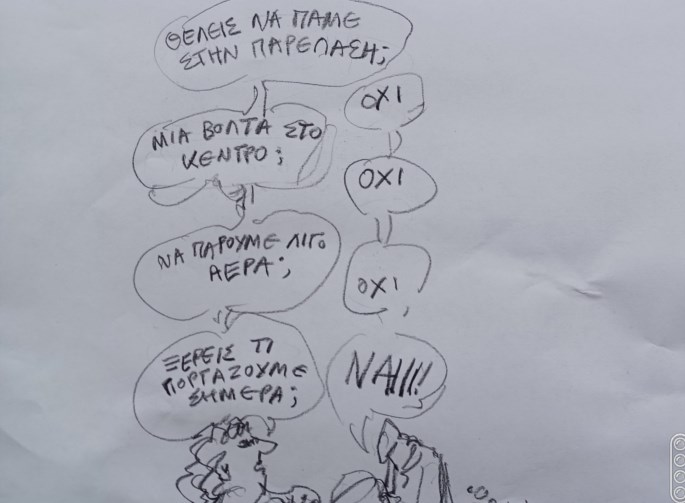 ΘΕΛΕΙΣ ΝΑ ΠΑΜΕ
ΣΤΗΝ ΠΑΡΕΛΑΣΗ;
ΟΧΙ
ΜΙΑ ΒΟΛΤΑ ΣΤΟ
ΚΕΝΤΡΟ;
ΟΧΙ
ΝΑ ΠΑΡΟΥΜΕ ΛΙΓΟ
ΑΕΡΑ;
ΟΧΙ
ΞΕΡΕΙΣ ΤΙ
ΓΙΟΡΤΑΖΟΥΜΕ
ΣΗΜΕΡΑ;
ΝΑΙ!!!!